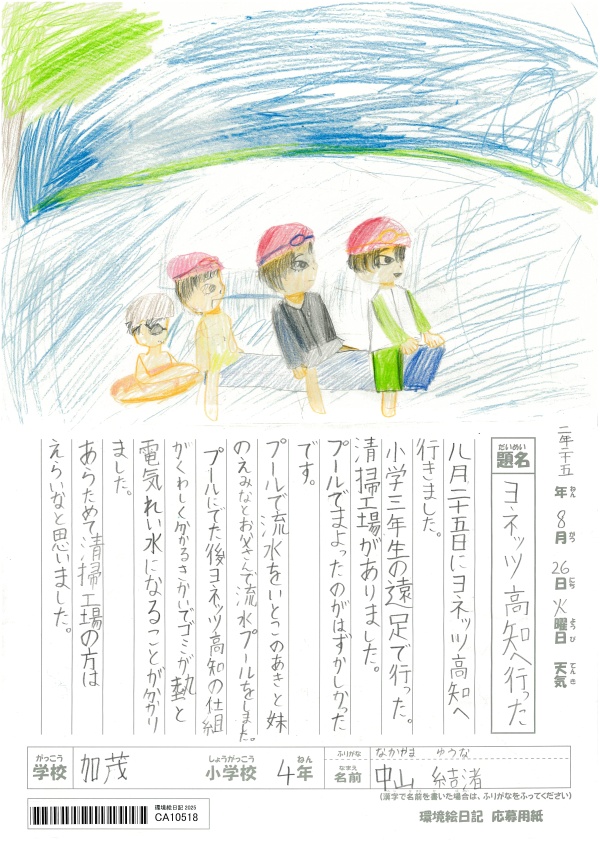 二千二十五年8月26日火曜日 天気
ねん がつ にち ようび てんき
だいめい
題名 ヨネッツ高知へ行った
八月二十五日にヨネッツ高知へ
行きました。
小学三年生の遠足で行った。
清掃工場がありました。
プールでまよったのがはずかしかった
です。
プールで流水をいとこのあきと妹
のえみなとお父さんで流水プールをしました。
プールにでた後ヨネッツ高知の仕組
がくわしく分かるさかいでゴミが熱と
電気れい水になることが分かり
ました。
あらためて清掃工場の方は
えらいなと思いました。
がっこう しょうがっこう ねん ふりがな なかやま ゆうな
学校 加茂 小学校 4年 なまえ 名前 中山 結渚
(漢字で名前を書いた場合は、ふりがなをふってください)
環境絵日記 2025
CA10518
環境絵日記 応募用紙